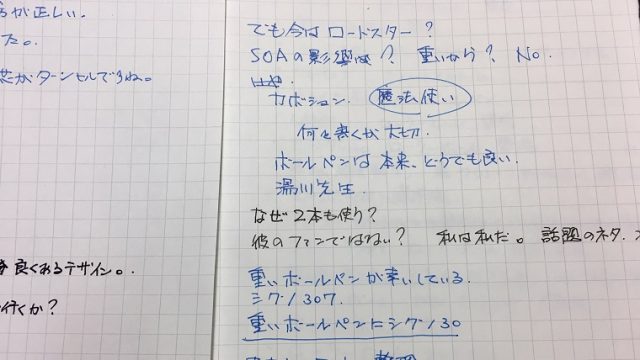 が正しい.
た。
芯がターンセルですね。
良くあるデザイン。.
行くか?
でも今は ロードスター?
SOAの影響は? 重いから? No.
カボション. 魔法使い
何を書くか大切.
ボールペンは本来、どうでも良い.
湯川先生.
なぜ2本も使う?
彼のファンではない? 私は私だ。 話題のネタ.
重いボールペンが幸いしている.
シグノ307.
重いボールペンにシグノ30